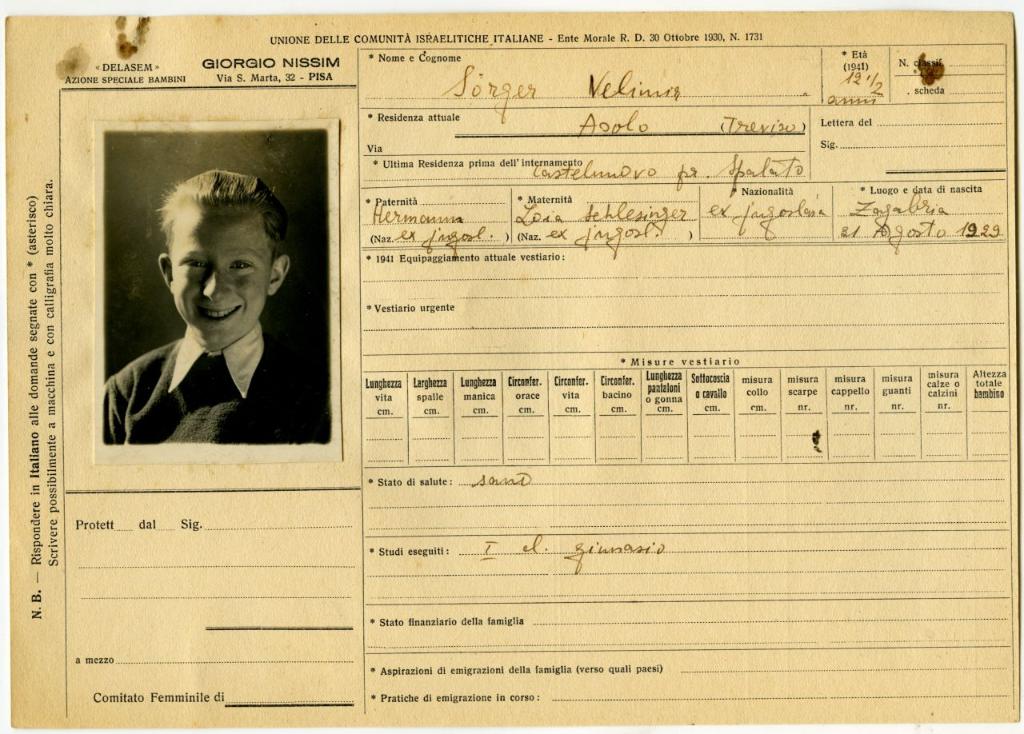 UNIONE DELLE COMUNITÀ ISRAELITICHE ITALIANE - Ente Morale R. D. 30 Ottobre 1930, N. 1731
«DELASEM»
AZIONE SPECIALE BAMBINI
GIORGIO NISSIM
Via S. Marta, 32 - PISA
N. B. — Rispondere in Italiano alle domande segnate con * (asterisco)
Scrivere possibilmente a macchina e con calligrafia molto chiara.
Protett dal Sig.
a mezzo
Comitato Femminile di
* Nome e Cognome
Sörger Velimir
* Età
(1941)
12 1/2
anni
N. classif
. scheda
* Residenza attuale
Asolo (Treviso)
Via
Lettera del
Sig.
* Ultima Residenza prima dell'internamento
Castelnuovo pr. Spalato
* Paternità
Hermann
(Naz. ex jugosl. )
* Maternità
Schlesinger
(Naz. ex jugosl. )
* Nazionalità
ex jugoslava
* Luogo e data di nascita
Zagabria
21 Agosto 1929
* 1941 Equipaggiamento attuale vestiario:
* Vestiario urgente
* Misure vestiario
Lunghezza vita cm.
Larghezza spalle cm.
Lunghezza manica cm.
Circonfer. orace cm.
Circonfer. vita cm.
Circonfer. bacino cm.
Lunghezza pantaloni o gonna cm.
Sottocoscia o cavallo cm.
misura collo cm.
misura scarpe nr.
misura cappello nr.
misura guanti nr.
misura calze o calzini nr.
Altezza totale bambino
* Stato di salute: sano
* Studi eseguiti: I cl. ginnasio
* Stato finanziario della famiglia
* Aspirazioni di emigrazioni della famiglia (verso quali paesi)
* Pratiche di emigrazione in corso: